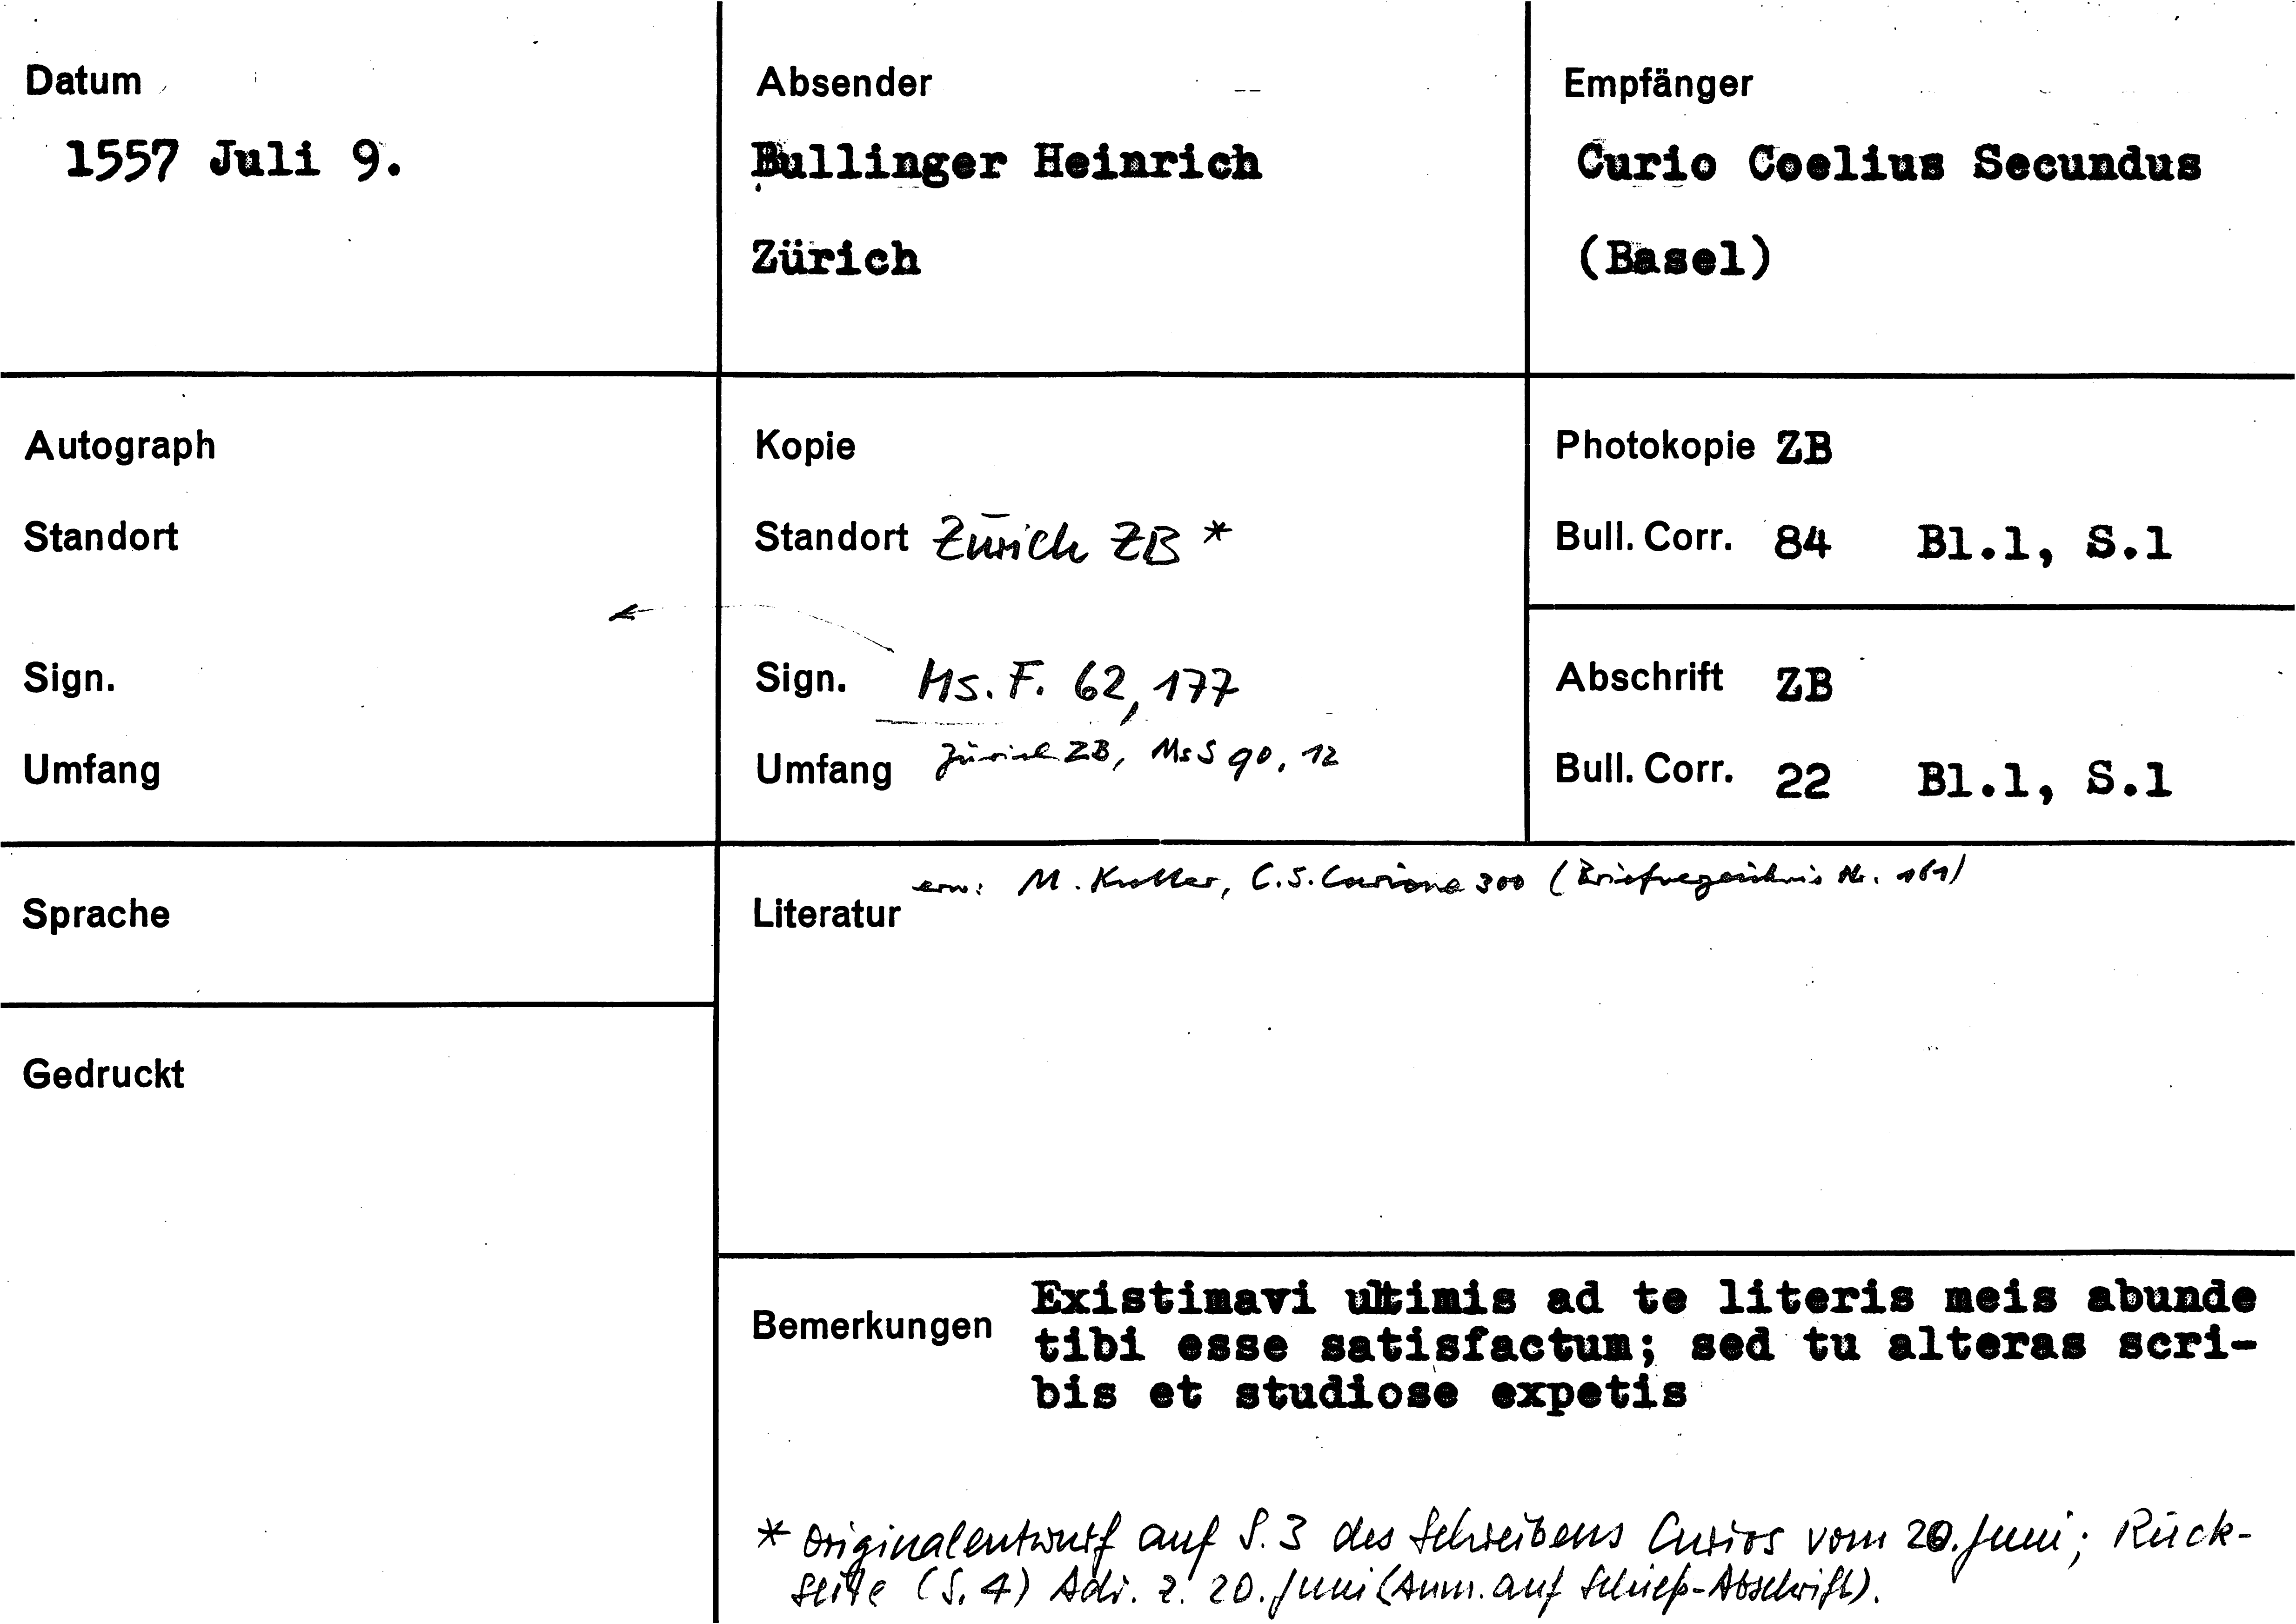 Datum
1557 Juli 9.
Absender
Bullinger Heinrich
Zürich
Empfänger
Curio Coelius Secundus
(Basel)
Autograph
Standort
Sign.
Umfang
Kopie
Standort Zürich ZB *
Sign. Ms. F. 62, 177
Umfang Zürich ZB, Ms S 90, 12
Photokopie ZB
Bull. Corr. 84 Bl.1, S.1
Abschrift ZB
Bull. Corr. 22 Bl.1, S.1
Sprache
Gedruckt
erw: M. Kutter, C.S. Curione 300 (Briefverzeichnis Nr. 161)
Literatur
Bemerkungen Existimavi ultimis ad te literis meis abunde
tibi esse satisfactum; sed tu alteras scri-
bis et studiose expetis
* Originalentwurf auf S. 3 des Schreibens Curios vom 20. Juni; Rück-
seite (S. 4) Adr. z. 20. Juni (Anm. auf Schieß-Abschrift).